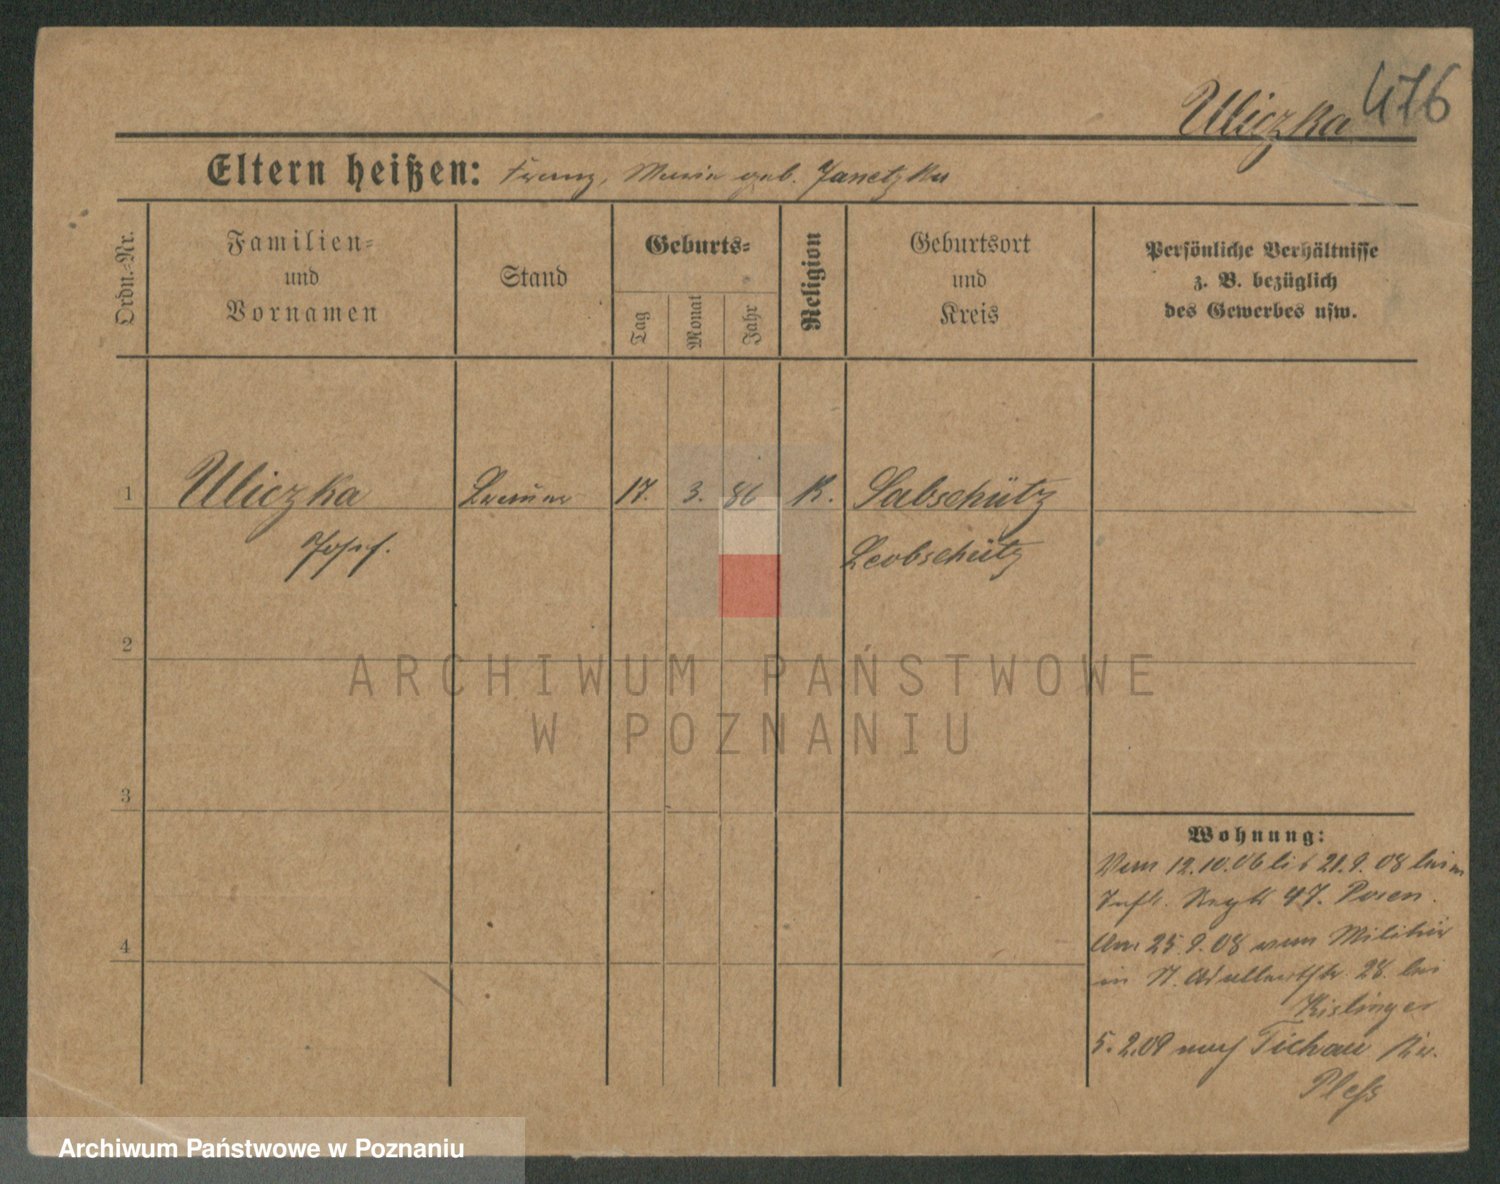 Uliczka 476
Eltern heißen: Franz, Marie geb. Janetzka
Ordn.-Nr.
Familien-
und
Vornamen
Stand
Geburts-
Tag
Monat
Jahr
Religion
Geburtsort
und
Kreis
Persönliche Verhältnisse
z. B. bezüglich
des Gewerbes usw.
1 Uliczka Brauer 17. 3. 86 K. Sabschütz
Josef. Leobschütz
2
3
4
Wohnung:
Vom 12.10.06 bis 21.9.08 beim
Inft. Regt. 47. Posen.
Am 25.9.08 vom Militär
in St. Adalbertstr. 28. bei
Kislinger
5.2.09 nach Tichau Kr.
Pleß
ARCHIWUM PAŃSTWOWE
W POZNANIU
Archiwum Państwowe w Poznaniu